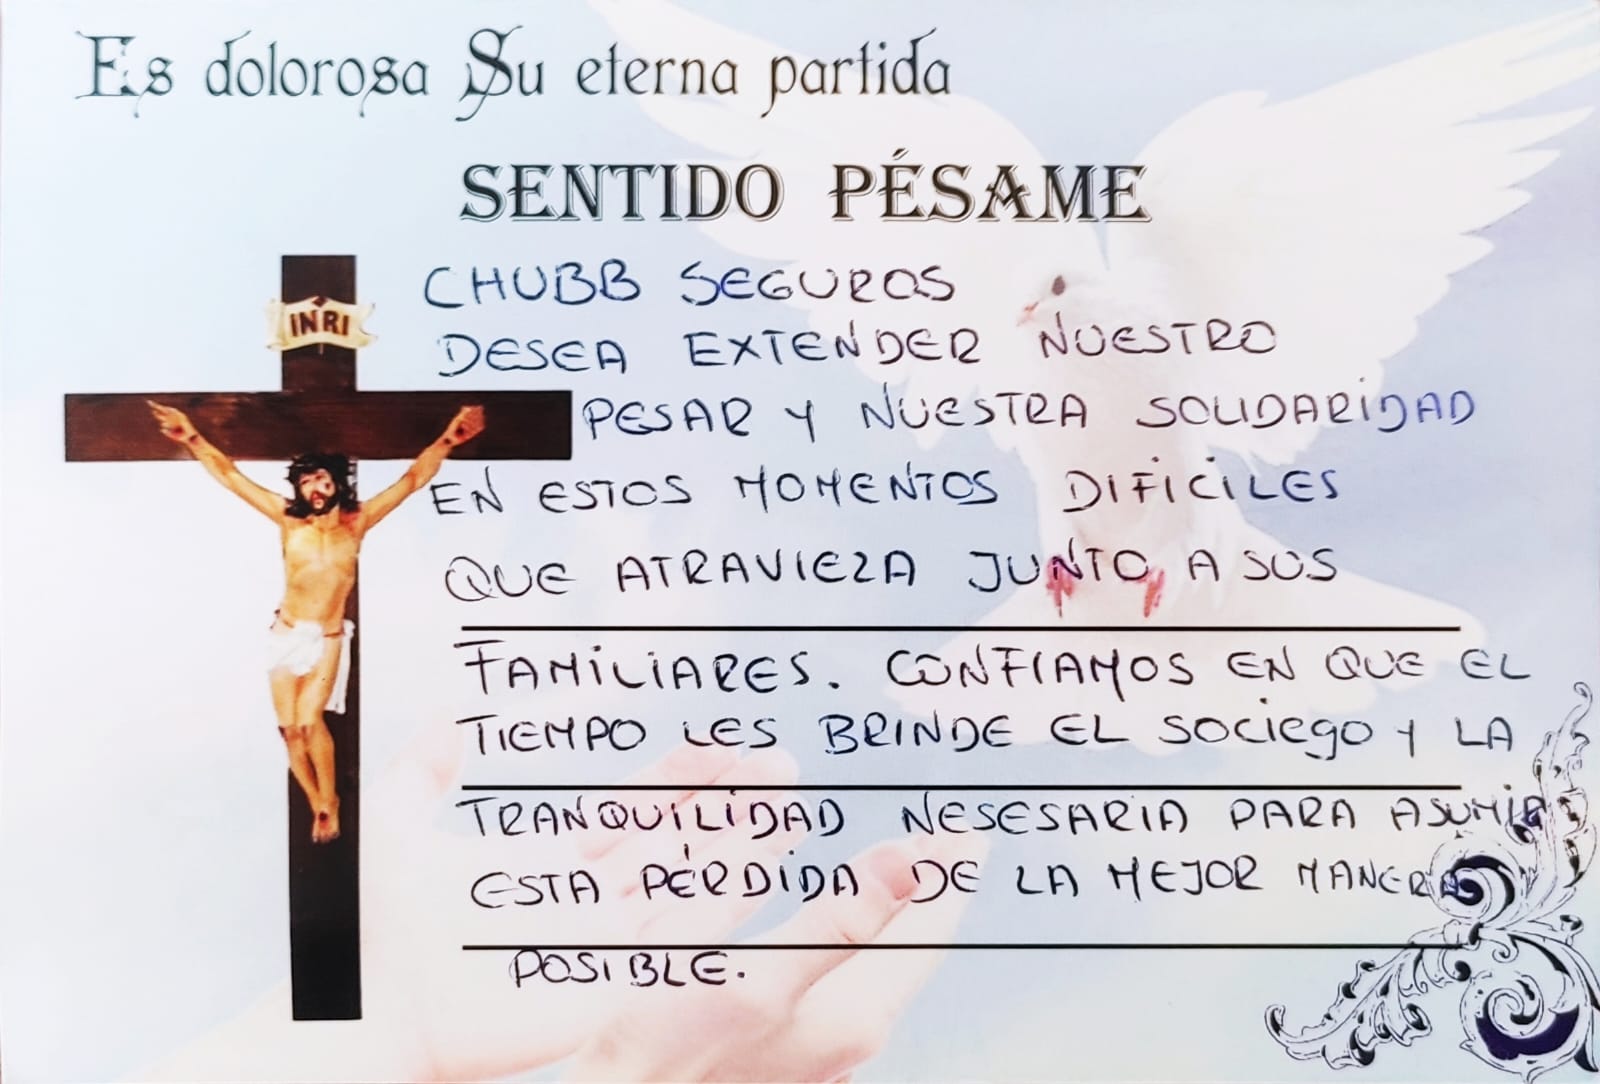 Es dolorosa Su eterna partida
SENTIDO PÉSAME
INRI
CHUBB SEGUROS
DESEA EXTENDER NUESTRO
PESAR Y NUESTRA SOLIDARIDAD
EN ESTOS MOMENTOS DIFICILES
QUE ATRAVIEZA JUNTO A SUS
FAMILIARES. CONFIAMOS EN QUE EL
TIEMPO LES BRINDE EL SOCIEGO Y LA
TRANQUILIDAD NESESARIA PARA ASUMIR
ESTA PÉRDIDA DE LA MEJOR MANERA
POSIBLE.